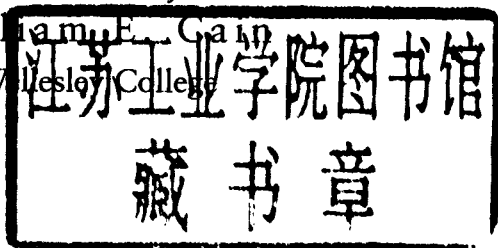 iam E. Cain
Wellesley College
江苏工业学院图书馆
藏书章